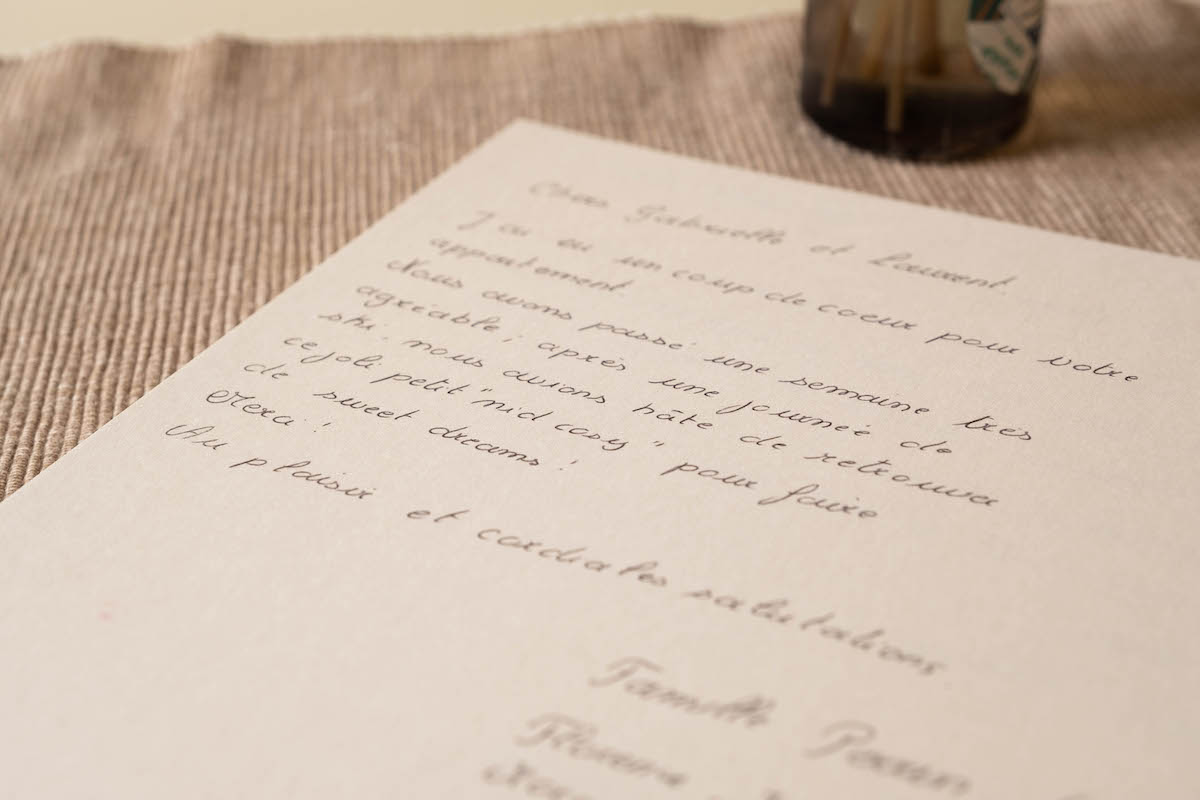 Chers Gabrielle et Laurent.
J'ai eu un coup de coeur pour votre
appartement.
Nous avons passé une semaine très
agréable, après une journée de
ski. nous avions hâte de retrouver
ce joli petit "nid cosy" pour faire
de sweet dreams!
Merci!
Au plaisir et cordiales salutations
Famille